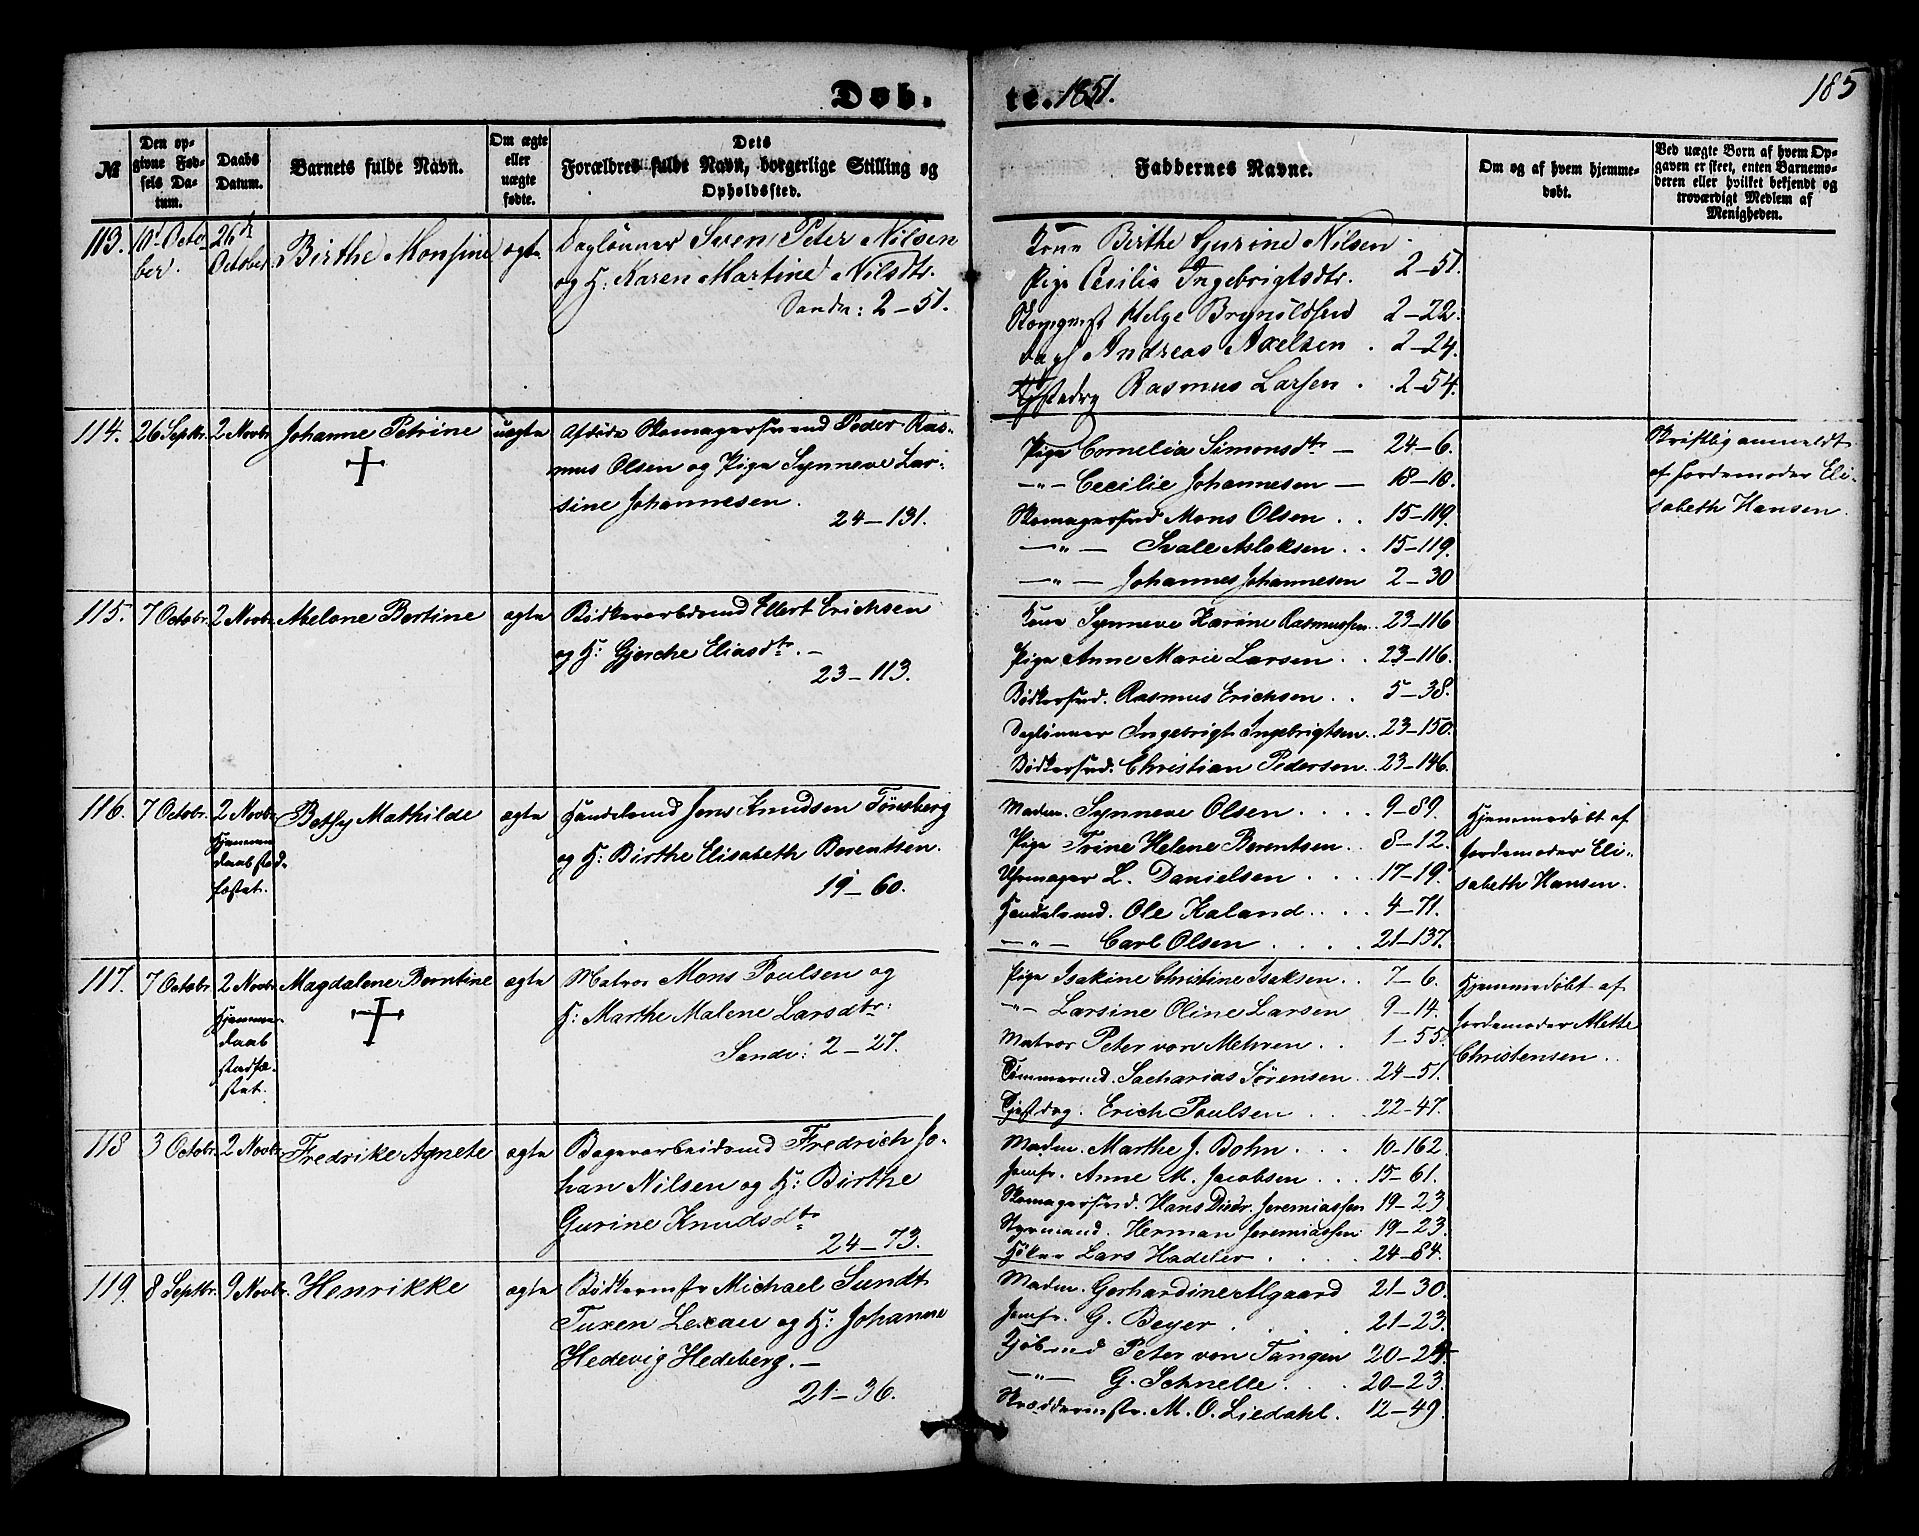 Døb- te. 1851. 185
№
Den op-
givne Fød-
sels Da-
tum.
Daabs
Datum.
Barnets fulde Navn.
Om ægte
eller
uægte
fødte.
Dets
Forældres fulde Navn, borgerlige Stilling og
Opholdssted.
Faddernes Navne.
Om og af hvem hjemme-
døbt.
Ved uægte Børn af hvem Op-
gaven er skeet, enten Barnemo-
deren eller hvilket bekjendt og
troværdigt Medlem af
Menigheden.
113. 10de Octo-
ber.
26de
October
Birthe Monsine
ægte
Daglønner Sven Peter Nilsen
og K: Karen Martine Nilsdtr.
Sandv: 2-51.
Kone Birthe Gurine Nilsen
Pige Cecilia Ingebrigtsdtr. 2-51.
Helge Brynildsen 2-22.
Dagl Andreas Axelsen . 2-24.
Rasmus Larsen . 2-54.
114. 26 Septbr. 2 Novbr. Johanne Petrine uægte
Afdøde Skomagersvend Peder Ras-
mus Olsen og Pige Synneve Lar-
sine Johannesen.
24-131.
Pige Cornelia Simonsdtr - 24-6.
-"- Cecilie Johannesen - 18-18.
Skomagersvd Mons Olsen . . 15-119.
-"- Svale Aslaksen . . 15-119.
-"- Johannes Johannesen 2-30
Skriftlig anmeldt
af Jordemoder Eli-
sabeth Hansen.
115. 7 Octobr. 2 Novbr. Abelone Bertine ægte
Bødkerarbeidsmd Ellert Erichsen
og K: Gjerche Eliasdtr. -
23-113.
Kone Synneve Karine Rasmussen.. 23-116
Pige Anne Marie Larsen . . 23-116.
Bødkersvd. Rasmus Erichsen . . 5-38.
Daglønner Ingebrigt Ingebrigtsen.. 23-150.
Bødkersvd. Christian Pedersen.. 23-146.
116. 7 Octobr. 2 Novbr.
Hjemme
daab stad-
fæstet.
Betsy Mathilde ægte
Handelsmd Jens Knudsen Tønsberg
og K: Birthe Elisabeth Berentsen.
19-60.
Madm. Synneve Olsen . . . . 9-89.
Pige Trine Helene Berentsen . . 8-12.
Uhrmager L. Danielsen . . . . 17-19.
Handelsmd. Ole Kaland . . . . 4-71.
-"- Carl Olsen . . . . 21-137.
Hjemmedøbt af
Jordemoder Eli-
sabeth Hansen.
117. 7 Octobr. 2 Novbr.
Hjemme-
daab
stadfæ-
stet.
Magdalene Berntine ægte
Matros Mons Poulsen og
K: Marthe Malene Larsdtr:
Sandv: 2-27.
Pige Isakine Christine Isaksen . . 7-6.
-"- Larsine Oline Larsen 9-14.
Matros Peter von Mehren . . 1-55.
Tømmermd. Sacharias Sørensen . . 24-51.
Erich Poulsen . . . 22-47.
Hjemmedøbt af
Jordemoder Alette
Christensen . .
118 3 Octobr. 2 Novbr. Fredrike Agnete ægte
Bagerarbeidsmd Fredrich Jo-
han Nilsen og K: Birthe
Gurine Knudsdtr
24-73.
Madm. Marthe J. Bohn . . . 10-162.
Jomfr. Anne M. Jacobsen . . . 15-61.
Skomagersvd. Hans Didr. Jeremiassen 19-23
Styrmand. Herman Jeremiassen 19-23.
Høker Lars Hadeler . . . . 24-84.
119. 8 Septbr. 9 Novbr. Henrikke ægte
Bødkermstr Michael Sundt
Tuxen Lexau og K: Johanne
Hedevig Hedeberg. -
21-36.
Madm. Gerhardine Algaard 21-30.
Jomfr. G. Beyer . . . . 21-23.
Kjøbmd Peter von Tangen 20-29
-"- G. Schnelle . . . 20-23.
Skræddermstr. M. O. Liedahl. . 12-49.